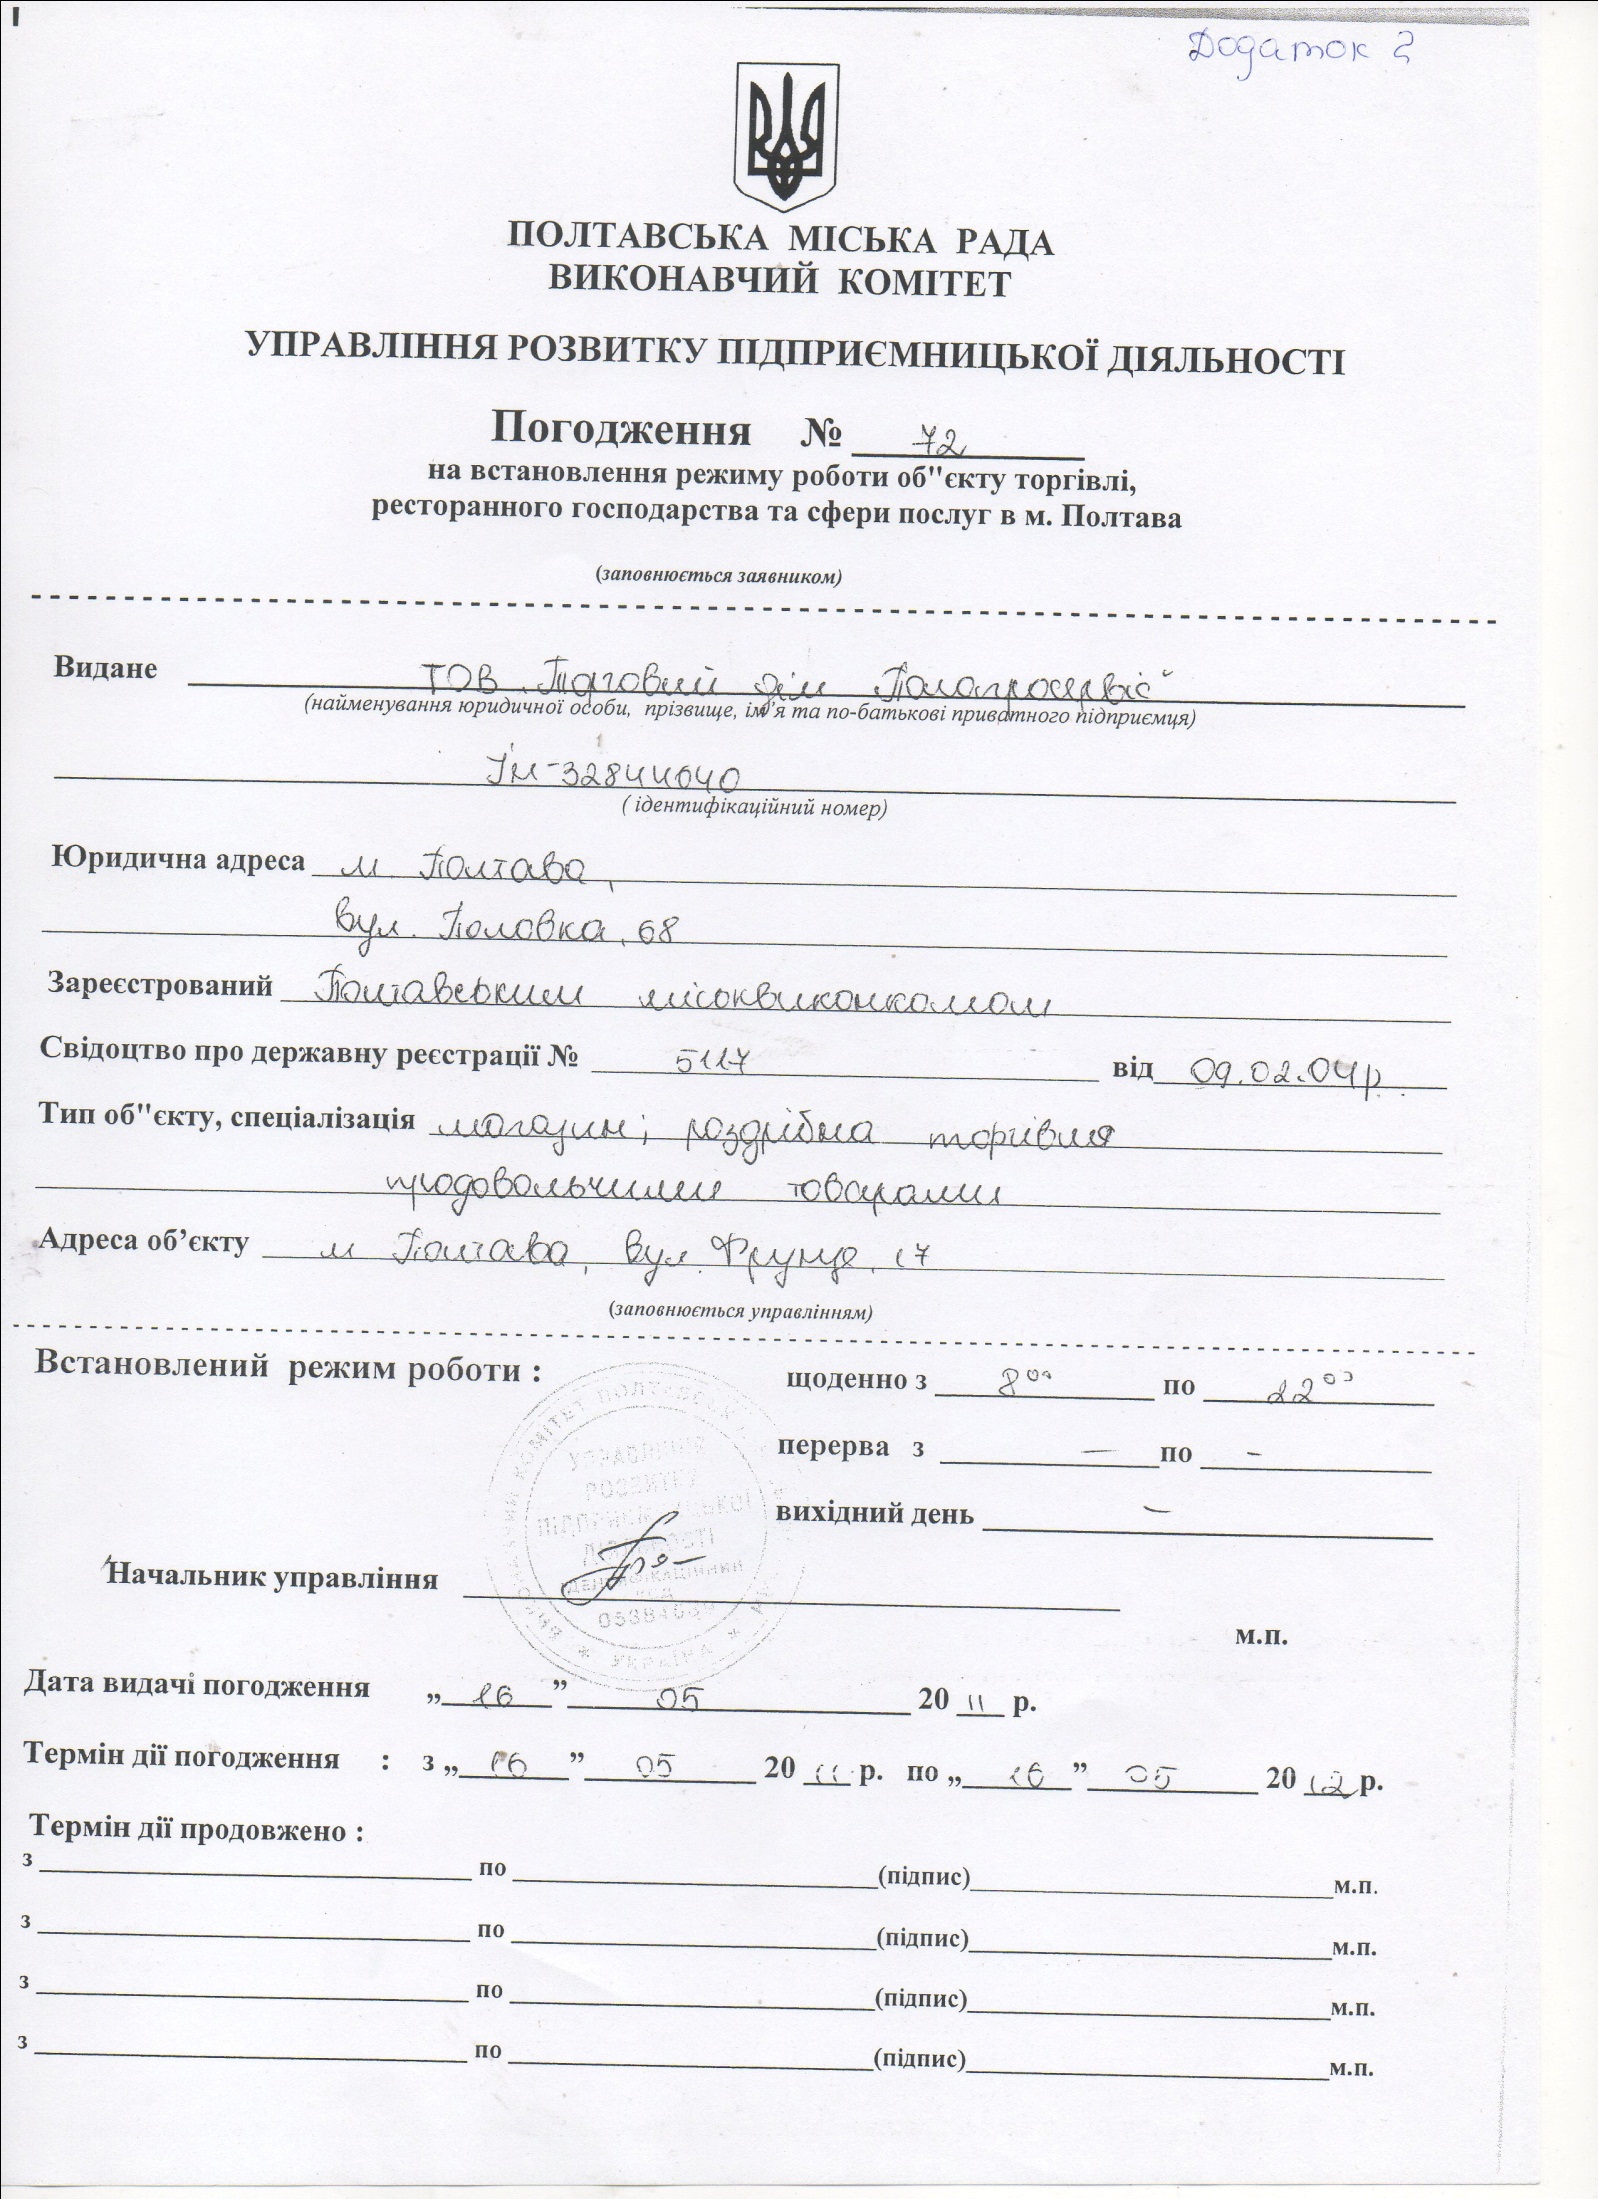 Додаток 2
ПОЛТАВСЬКА МІСЬКА РАДА
ВИКОНАВЧИЙ КОМІТЕТ
УПРАВЛІННЯ РОЗВИТКУ ПІДПРИЄМНИЦЬКОЇ ДІЯЛЬНОСТІ
Погодження № 72
на встановлення режиму роботи об"єкту торгівлі,
ресторанного господарства та сфери послуг в м. Полтава
(заповнюється заявником)
Видане ТОВ „Торговий дім
(найменування юридичної особи, прізвище, ім'я та по-батькові приватного підприємця)
Ін-32844040
( ідентифікаційний номер)
Юридична адреса м. Полтава,
вул. Половка, 68
Зареєстрований Полтавським міськвиконкомом
Свідоцтво про державну реєстрації № 5117 від 09.02.04р.
Тип об"єкту, спеціалізація магазин; роздрібна торгівля
продовольчими товарами
Адреса об’єкту м Полтава, вул. Фрунзе, 17
(заповнюється управлінням)
Встановлений режим роботи :
щоденно з 8⁰⁰ по 22⁰⁰
перерва з — по –
вихідний день –
ВИКОНАВЧИЙ КОМІТЕТ ПОЛТАВСЬКОЇ
УПРАВЛІННЯ
РОЗВИТКУ
ПІДПРИЄМНИЦЬКОЇ
ДІЯЛЬНОСТІ
ІДЕНТИФІКАЦІЙНИЙ
КОД
* УКРАЇНА *
Начальник управління
м.п.
Дата видачі погодження „ 16 ” 05 20 11 р.
Термін дії погодження : з „ 16 ” 05 20 11 р. по „ 16 ” 05 20 12 р.
Термін дії продовжено :
з по (підпис) м.п.
з по (підпис) м.п.
з по (підпис) м.п.
з по (підпис) м.п.